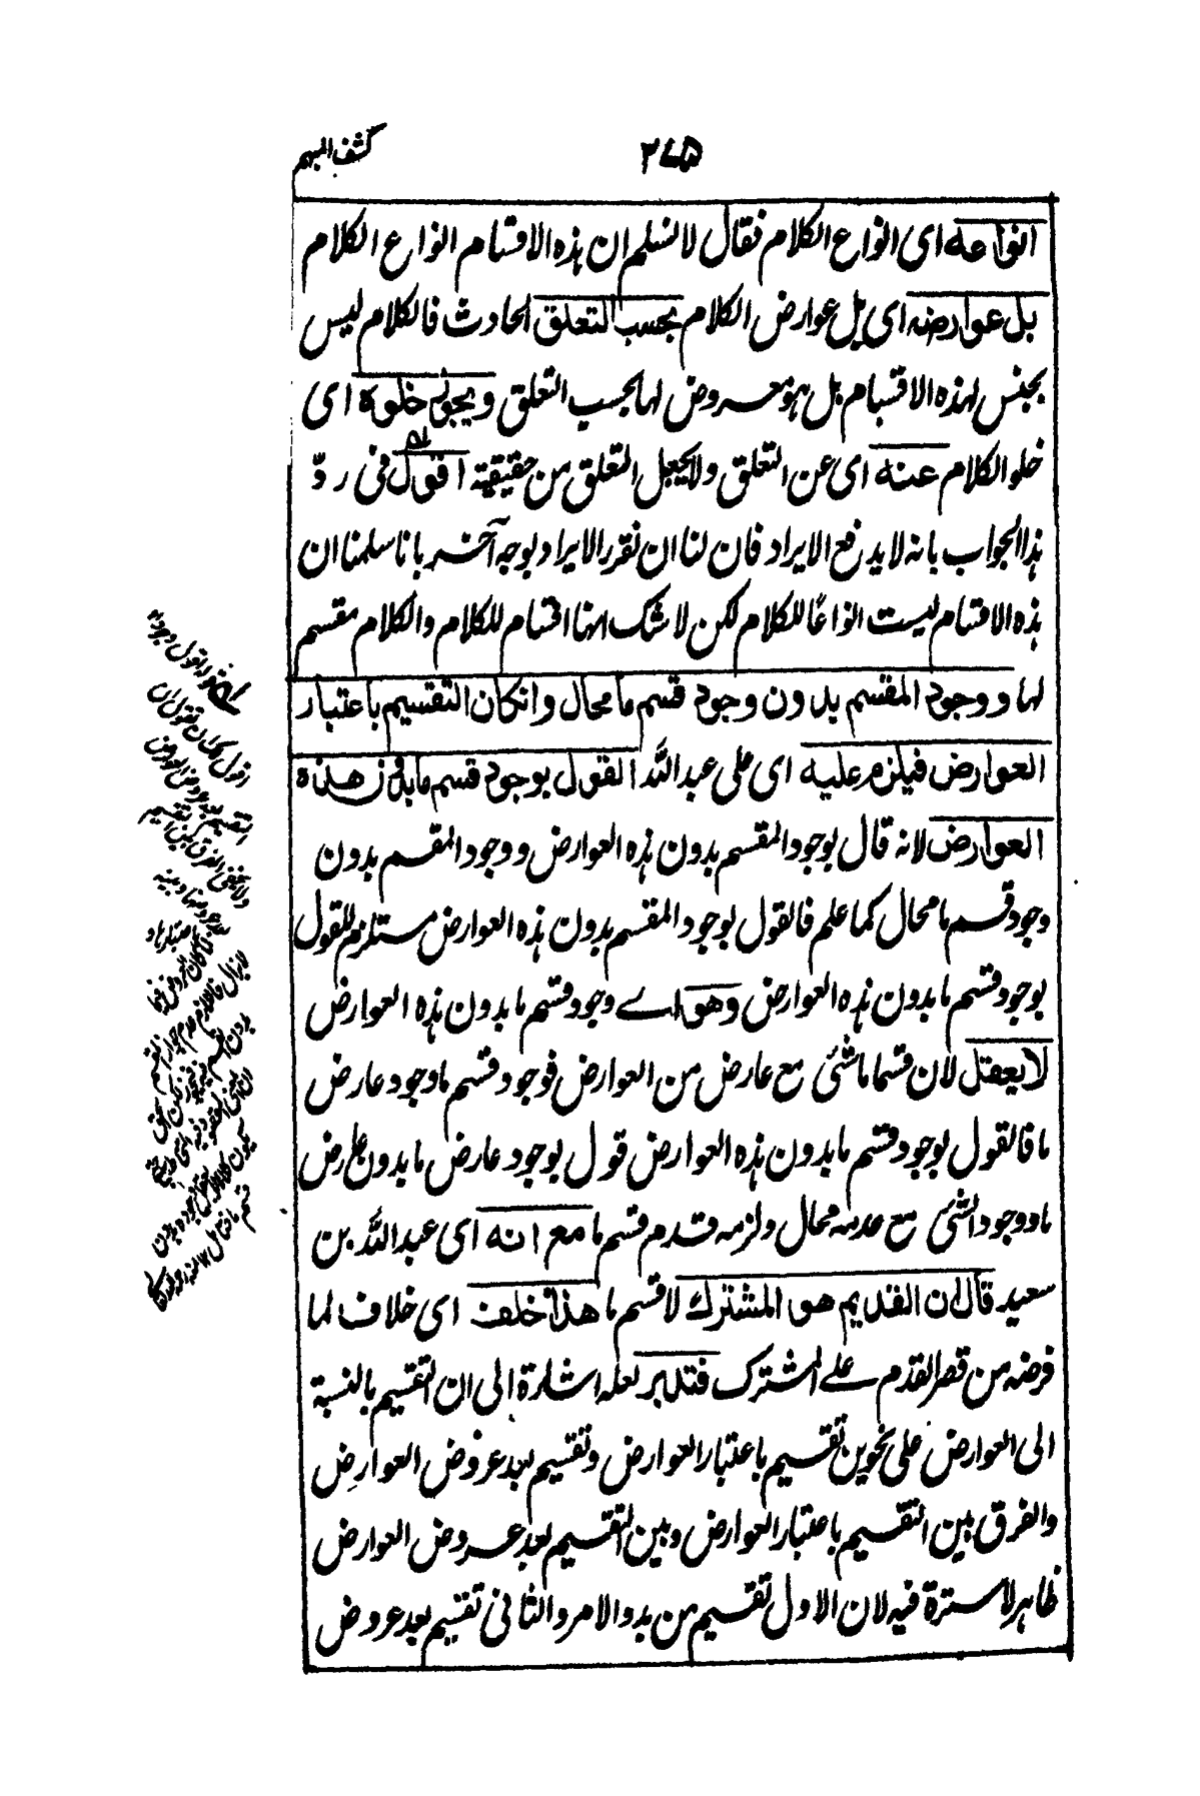 كشف المبهم
٢٧٥
انواعه اى انواع الكلام فقال لا نسلم ان هذه الاقسام انواع الكلام
بل عوارضه اى بل عوارض الكلام بحسب التعلق الحادث فالكلام ليس
بجنس لهذه الاقسام بل هو معروض لها بحسب التعلق ويجوز خلوه اى
خلو الكلام عنه اى عن التعلق ولا يجعل التعلق من حقيقته اقول فى ردّ
هذا الجواب بانه لا يدفع الايراد فان لنا ان نقرر الايراد بوجه آخر بانا سلمنا ان
هذه الاقسام ليست انواعًا للكلام لكن لا شك انها اقسام للكلام والكلام مقسم
لها ووجود المقسم بدون وجود قسم ما محال وانكان التقسيم باعتبار
العوارض فيلزم عليه اى على عبد الله القول بوجود قسم ما بدون هذه
العوارض لانه قال بوجود المقسم بدون هذه العوارض ووجود المقسم بدون
وجود قسم ما محال كما علم فالقول بوجود المقسم بدون هذه العوارض مستلزم للقول
بوجود قسم ما بدون هذه العوارض وهو اے وجود قسم ما بدون هذه العوارض
لا يعقل لان قسما ما شئى مع عارض من العوارض فوجود قسم ما وجود عارض
ما فالقول بوجود قسم ما بدون هذه العوارض قول بوجود عارض ما بدون عارض
ما ووجود الشئ مع عدمه محال ولزمه قدم قسم ما مع انه اى عبد الله بن
سعيد قال ان القديم هو المشترك لا قسم ما هذا خلف اى خلاف لما
فرضه من قصر القدم علے المشترك فتدبر لعله اشارة الى ان التقسيم بالنسبة
الى العوارض على نحوين تقسيم باعتبار العوارض وتقسيم بعد عروض العوارض
والفرق بين التقسيم باعتبار العوارض وبين التقسيم بعد عروض العوارض
ظاهر لا سترة فيه لان الاول تقسيم من بدو الامر والثانى تقسيم بعد عروض